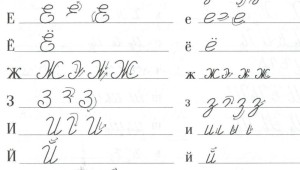 Е Е Е Е е е е е
Ё Ё ё ё
Ж Ж Ж Ж ж ж ж ж
З З З з з з з
И И И и и и
Й Й й й